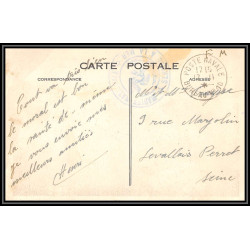 CARTE POSTALE
F M
CORRESPONDANCE
ADRESSE
POSTE NAVALE
Tout va très bien
le moral est bon
la santé de même
je vous envoie mes
meilleures amitiés
Henri
3 rue Marjolin
Levallois Perret
Seine